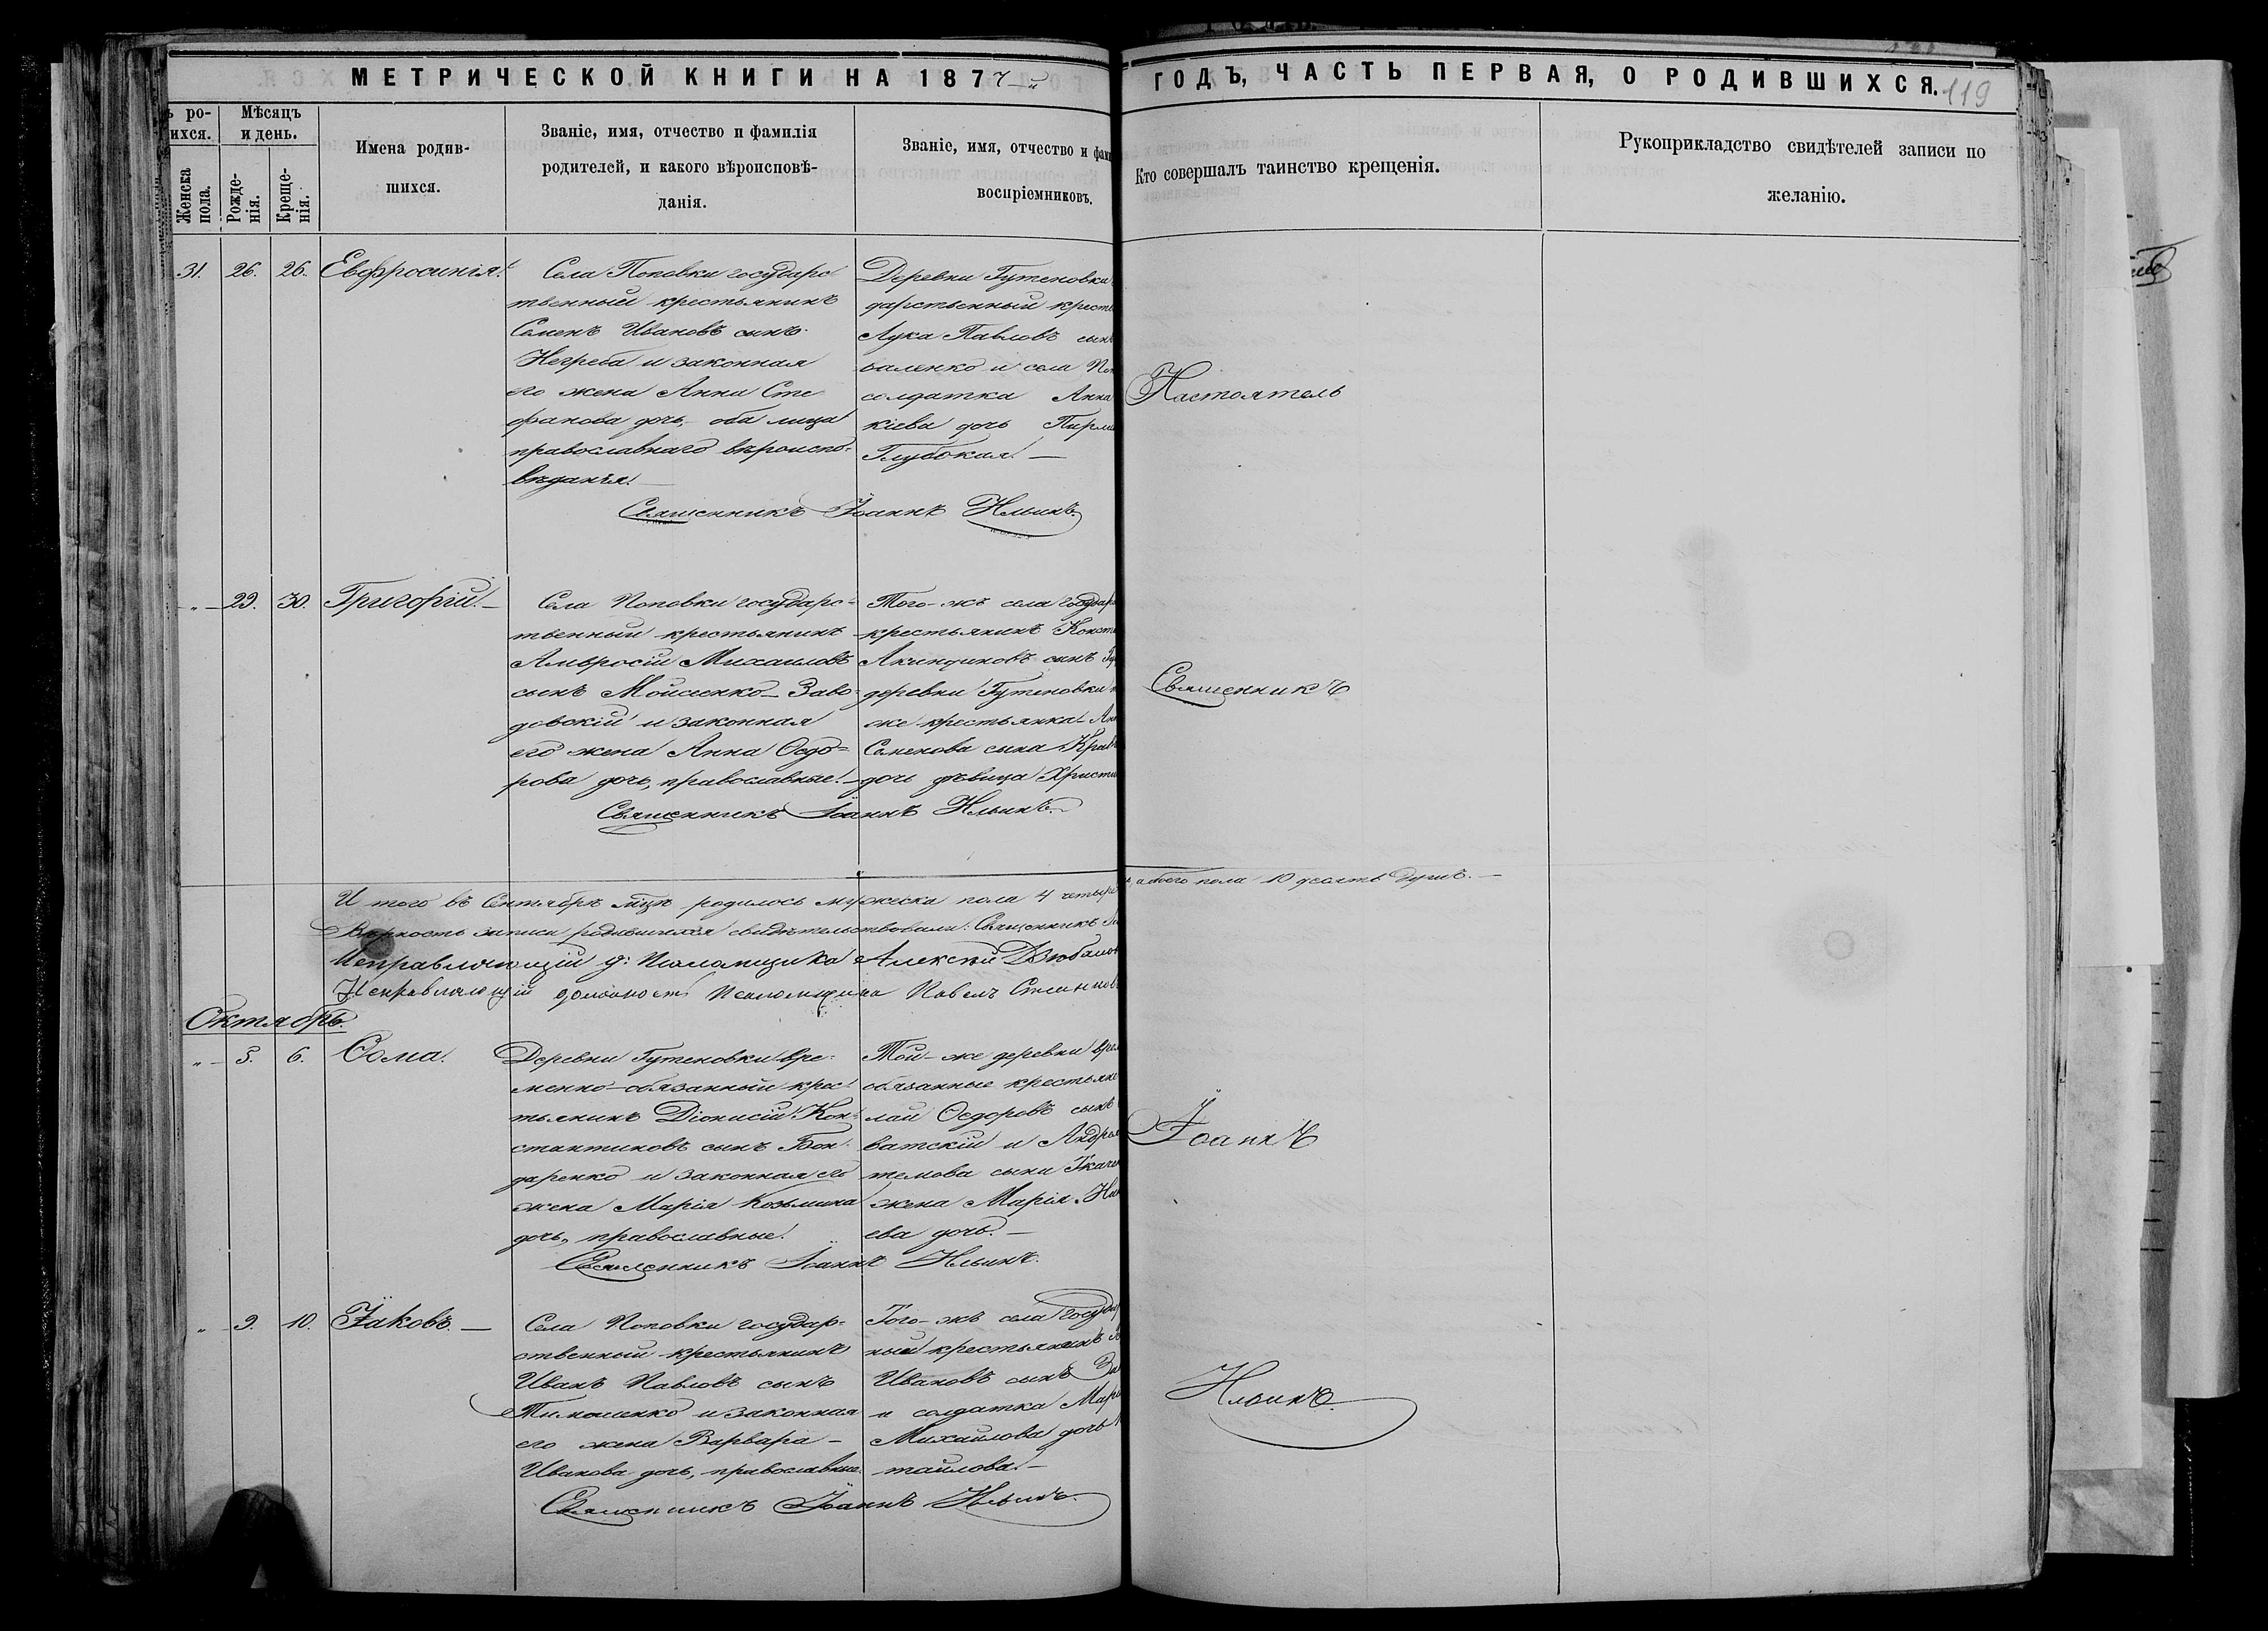 МЕТРИЧЕСКОЙ КНИГИ НА 1877-й
ГОДЪ, ЧАСТЬ ПЕРВАЯ, О РОДИВШИХСЯ.
119
ъ ро-
ихся.
Женска
пола.
Мѣсяцъ
и день.
Рожде-
нія.
Креще-
нія.
Имена родив-
шихся.
Званіе, имя, отчество и фамилія
родителей, и какого вѣроисповѣ-
данія.
Званіе, имя, отчество и фами
воспріемниковъ.
Кто совершалъ таинство крещенія.
Рукоприкладство свидѣтелей записи по
желанію.
31. 26. 26. Евфросинія.
Села Поповки государс-
твенный крестьянинъ
Семенъ Ивановъ сынъ
Негреба и законная
его жена Анна Сте
фанова дочь, оба лица
православнаго вѣроиспо-
вѣданія.
Деревни Гутеновки
дарственный кресть
Лука Павловъ сынъ
валенко и села Поп
солдатка Анна
кіева дочь
Глубокая.
Священникъ Іоаннъ Ильинъ.
Настоятель
„ 29. 30. Григорій.
Села Поповки государс-
твенный крестьянинъ
Амвросій Михаиловъ
сынъ Мойсеенко-Заво-
довскій и законная
его жена Анна Ѳедо-
рова дочь, православные.
Того-жъ села государ
крестьянинъ Конст
Акиндиновъ сынъ
деревни Гутеновки
же крестьянка
Семенова сына Крав
дочь дѣвица Христи
Священникъ Іоаннъ Ильинъ.
Священникъ
И того въ Сентябрѣ мцѣ родилось мужеска пола 4 четыре
а обоего пола 10 десять душъ.
Вѣрность записи родившихся свидѣтельствовали: Священникъ
Исправляющій д: Псаломщика Алексѣй
Исправляющій должность Псаломщика Павелъ
Октябрь.
„ 5. 6. Ѳома.
Деревни Гутеновки вре-
менно-обязанный крес-
тьянинъ Діонисій Кон-
стантиновъ сынъ Бон-
даренко и законная его
жена Марія Козьмина
дочь, православные.
Той-же деревни врем
обязанные крестьяне
лай Ѳедоровъ сынъ
ватскій и Андрея
темова сына Ткаче
жена Марія
ева дочь.
Священникъ Іоаннъ Ильинъ.
Іоаннъ
„ 9. 10. Іаковъ.
Села Поповки государ-
ственный крестьянинъ
Иванъ Павловъ сынъ
Тимошенко и законная
его жена Варвара
Иванова дочь, православные.
Того-жъ села государ
ный крестьянинъ
Ивановъ сынъ
и солдатка Мар
Михайлова дочь
тайлова.
Священникъ Іоаннъ Ильинъ.
Ильинъ.